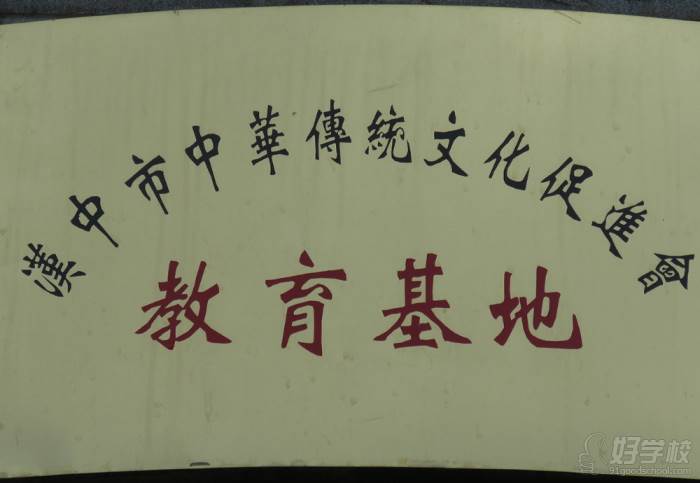 漢中市中華傳統文化促進會
教育基地
好学校
91goodschool.com